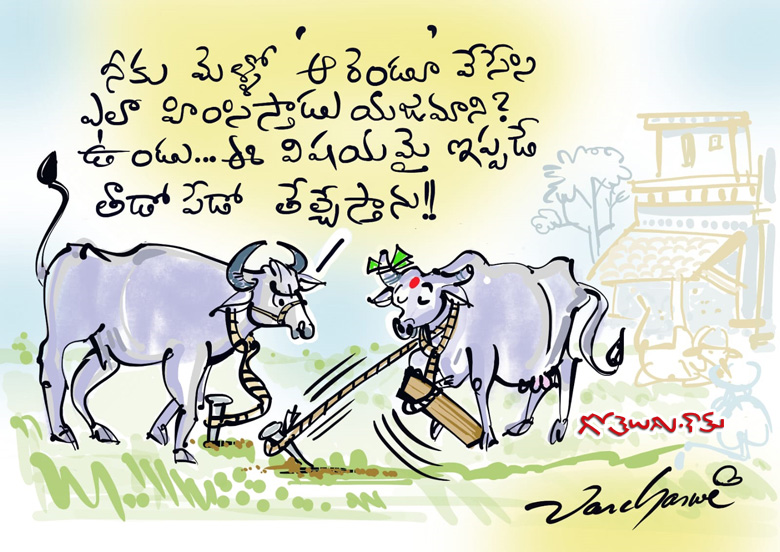 నీకు మెళ్ళో 'ఆ రెండూ' వేసేసి
ఎలా హింసిస్తాడు యజమాని?
ఉండు...ఈ విషయమై ఇప్పుడే
తాడో పేడో తేల్చేస్తాను!!
గోతెలుగు.కామ్
Varchaswi